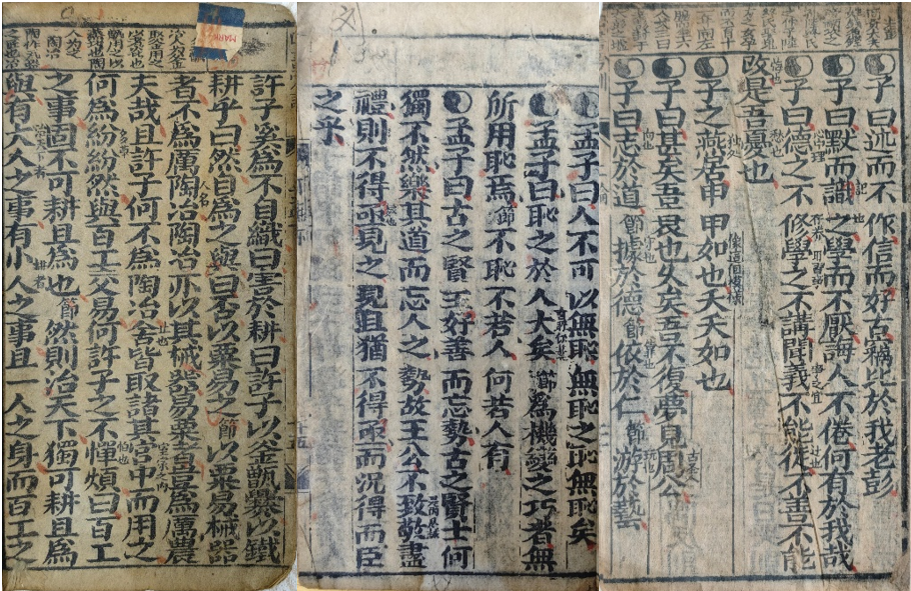 子曰述而不作信而好古竊比於我老彭
子曰默而識之學而不厭誨人不倦何有於我哉
子曰德之不修學之不講聞義不能徙不善不能
改是吾憂也
子之燕居申申如也夭夭如也
子曰甚矣吾衰也久矣吾不復夢見周公
子曰志於道節據於德節依於仁節游於藝
孟子曰人不可以無恥無恥之恥無恥矣
孟子曰恥之於人大矣節爲機變之巧者無
所用恥焉節不恥不若人何若人有
孟子曰古之賢王好善而忘勢古之賢士何
獨不然樂其道而忘人之勢故王公不致敬盡
禮則不得亟見之見且猶不得亟而况得而臣
之乎
許子奚爲不自織曰害於耕曰許子以釜甑爨以鐵
耕乎曰然自爲之與曰否以粟易之節以粟易械器
者不爲厲陶冶陶冶亦以其械器易粟者豈爲厲農
夫哉且許子何不爲陶冶舍皆取諸其宮中而用之
何爲紛紛然與百工交易何許子之不憚煩曰百工
之事固不可耕且爲也節然則治天下獨可耕且爲
與有大人之事有小人之事且一人之身而百工之